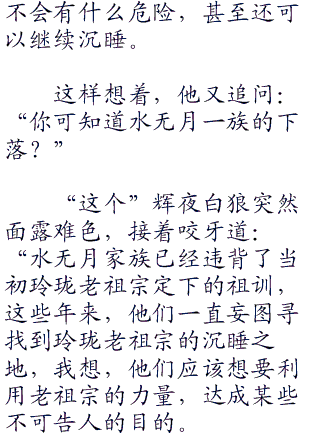 不会有什么危险，甚至还可
以继续沉睡。
这样想着，他又追问：
“你可知道水无月一族的下
落？”
“这个”辉夜白狼突然
面露难色，接着咬牙道：
“水无月家族已经违背了当
初玲珑老祖宗定下的祖训，
这些年来，他们一直妄图寻
找到玲珑老祖宗的沉睡之
地，我想，他们应该想要利
用老祖宗的力量，达成某些
不可告人的目的。